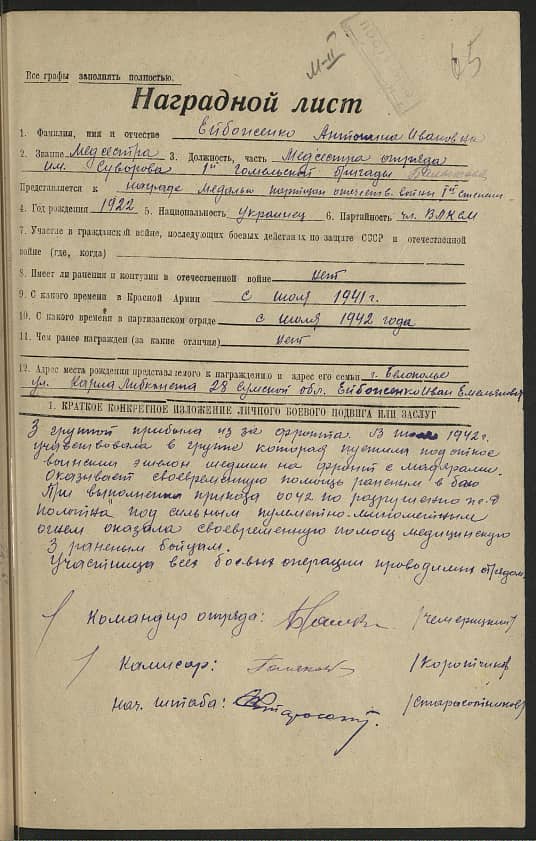 М-II
65
Все графы заполнять полностью.
Наградной лист
1. Фамилия, имя и отчество Ейбоженко Антонина Ивановна
2. Звание Медсестра 3. Должность, часть Медсестра отряда
им. Суворова 1ой Гомельской бригады
Представляется к награде Медалью партизан отечеств. войны Iой степени
4. Год рождения 1922 5. Национальность украинец 6. Партийность чл. ВЛКСМ
7. Участие в гражданской войне, последующих боевых действиях по защите СССР и отечественной
войне (где, когда)
8. Имеет ли ранения и контузии в отечественной войне нет
9. С какого времени в Красной Армии с июля 1941 г.
10. С какого времени в партизанском отряде с июля 1942 года
11. Чем ранее награжден (за какие отличия) нет
12. Адрес места рождения представляемого к награждению и адрес его семьи г.
ул. Карла Либкнехта 28 Сумской обл. Ейбоженко Иван Емельянович
1. КРАТКОЕ КОНКРЕТНОЕ ИЗЛОЖЕНИЕ ЛИЧНОГО БОЕВОГО ПОДВИГА ИЛИ ЗАСЛУГ
З группой прибыла из за фронта В 1942 г.
учавствовала в группе которая пустила под откос
воинский эшелон шедший на фронт с
Оказывает своевременную помощь раненым в бою
При выполнении приказа 0042 по разрушению ж-д
полотна под сильным пулеметно-минометным
огнем оказала своевременную помощь медицинскую
3 раненым бойцам.
Участница всех боевых операций проводимых отрядом.
Командир отряда: /Чемерицкий/
Комисар: /Коротчиков/
Нач. штаба: /Старосотников/